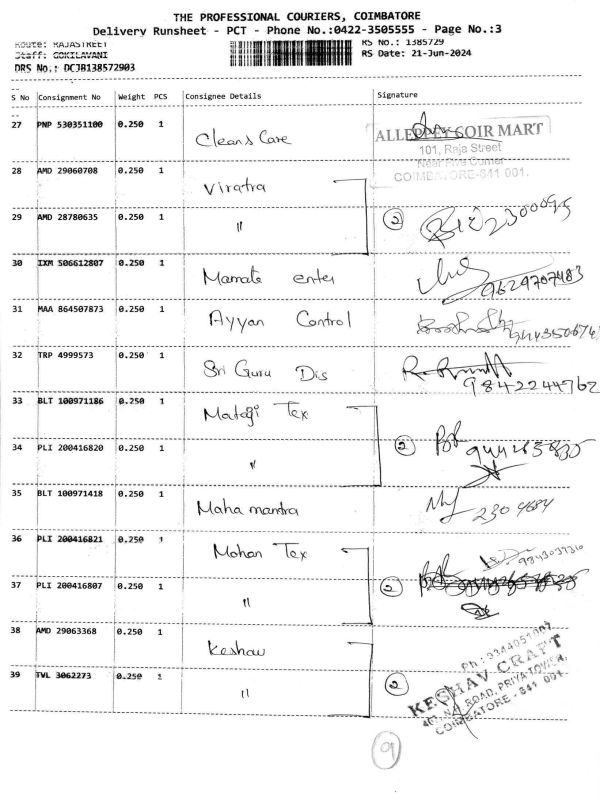 THE PROFESSIONAL COURIERS, COIMBATORE
Delivery Runsheet - PCT - Phone No.:0422-3505555 - Page No.:3
Route: RAJASTREET
RS No.: 1385729
Staff: GOKILAVANI
RS Date: 21-Jun-2024
DRS No.: DCJB138572903
S No Consignment No Weight PCS Consignee Details Signature
27 PNP 530351100 0.250 1 Cleans Care
ALLEPPEY COIR MART
101, Raja Street
Near Five Corner
COIMBATORE-641 001.
28 AMD 29060708 0.250 1 Viratra
29 AMD 28780635 0.250 1 " 2
30 IXM 506612807 0.250 1 Mamate enter 9629707483
31 MAA 864507873 0.250 1 Ayyan Control
32 TRP 4999573 0.250 1 Sri Guru Dis 9842244762
33 BLT 100971186 0.250 1 Matagi Tex
34 PLI 200416820 0.250 1 " 2
35 BLT 100971418 0.250 1 Maha mantra 2304684
36 PLI 200416821 0.250 1 Mohan Tex
37 PLI 200416807 0.250 1 " 2
38 AMD 29063368 0.250 1 Keshav
39 TVL 3062273 0.250 1 " 2
KESHAV CRAFT
COIMBATORE - 641 001.
9